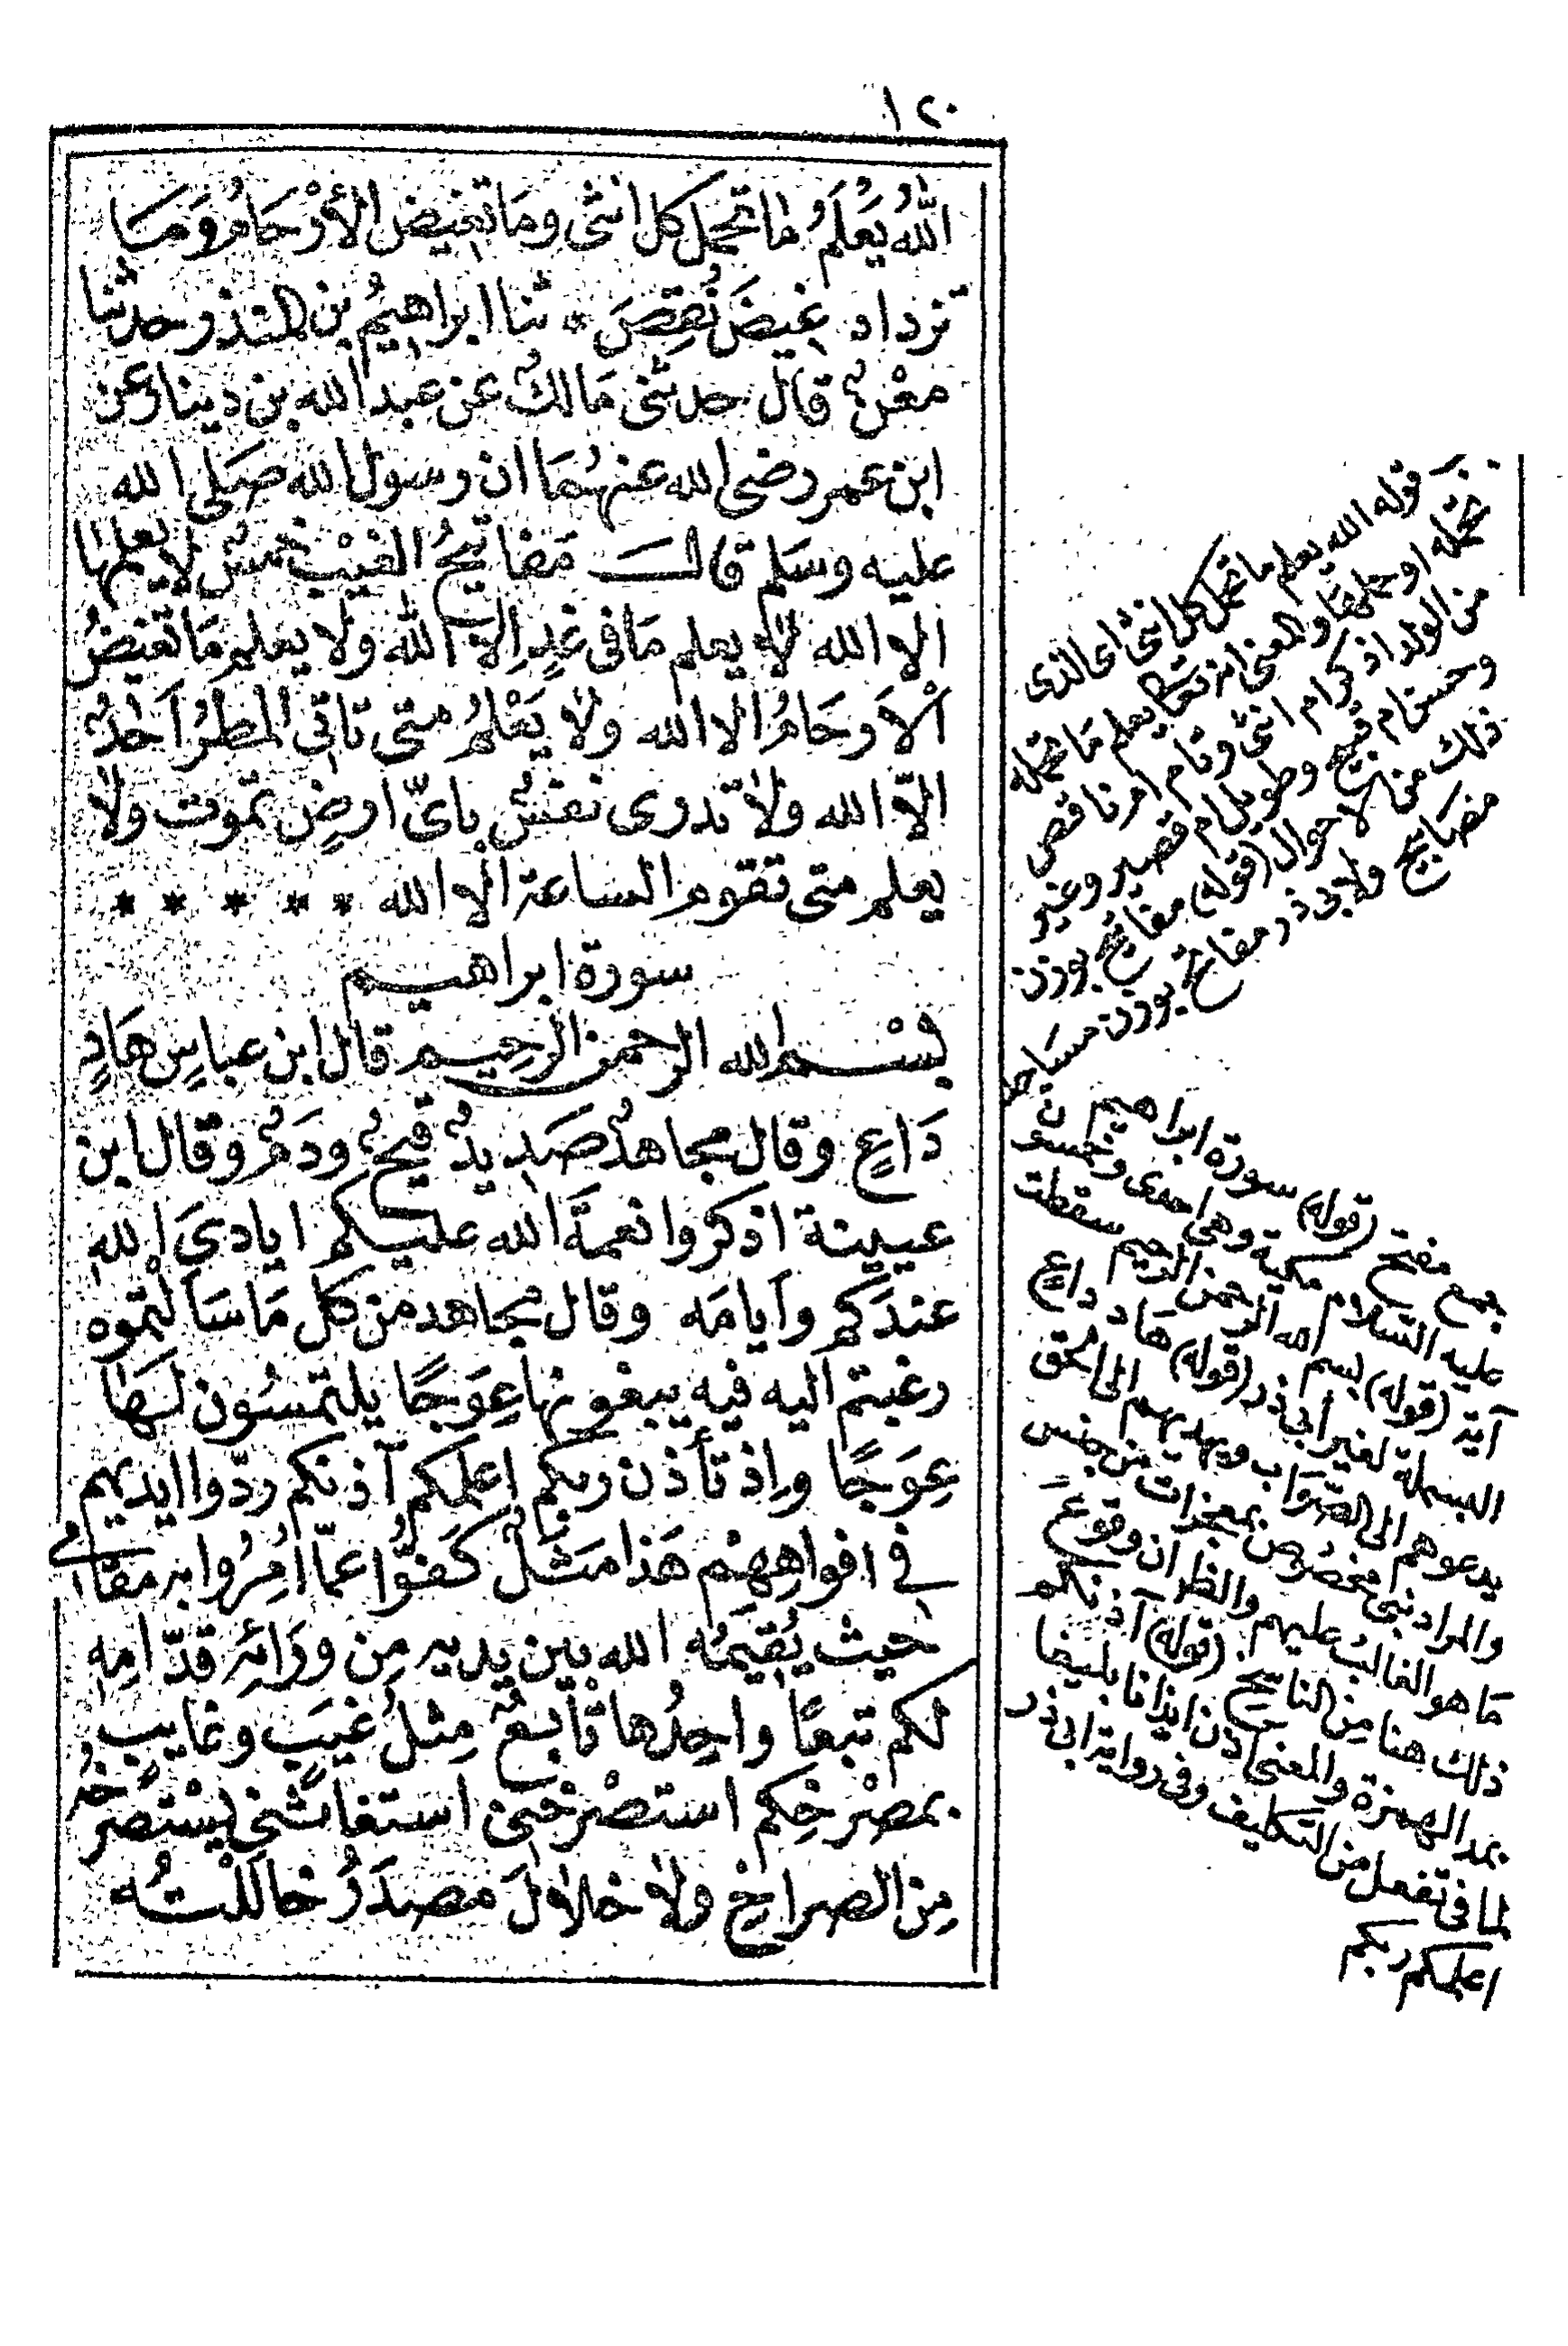 ١٢٠
اللهُ يَعْلَمُ مَا تحمل كل انثى ومَا تغيض الأرْحَامُ وَمَا
تزداد غِيضَ نُقِصَ * ثنا ابراهيمُ بن المنذر حدثنا
معْنٌ قال حدثنى مَالكٌ عن عبد الله بن دينار عن
ابن عمر رضى الله عنهُمَا ان رسول الله صَلى الله
عليه وسَلم قالــ مَفاتيحُ الغيْب خمسٌ لا يعلمها
الا الله لا يعلم مَا فى غدٍ اِلا الله ولا يعلم مَا تغيضُ
اَلْاَرحَامُ الا الله ولا يَعْلمُ متى تاتي المطرُ اَحَدٌ
الاّ الله ولا تدرى نفسٌ بِاىّ ارضٍ تموت ولا
يعلم متى تقوم الساعة الا الله * * * * *
سورة ابراهيم
بسْم الله الرحمن الرحِيم قال ابن عباسٍ هَادٍ
دَاعٍ وقال مجاهدٌ صَدِيدٌ قيحٌ ودَمٌ وقال ابن
عيينة اذكروا نعمَةَ الله عليكم ايادىَ الله
عندَكم وأيامَه وقال مجاهد من كل مَا سَألتموه
رغبتم اليه فيه يبغونها عِوَجًا يلتمسُون لهَا
عِوَجًا واِذ تأذن ربكم اعلمكم آذنكم ردّوا ايديهم
في افواهِهِمْ هَذا مَثلٌ كَفوُّا عمّا اُمِرُوا به مقامي
حَيث يُقيمُه الله بين يديه مِن ورَائهِ قدّامِه
لكم تبعًا واحِدُها تابعٌ مِثلُ غيَبٍ وغايبٍ
بمصْرخِكم استصْرخَنى استغاثنى يسْتصرخُه
مِن الصراخ ولا خلالَ مصدَرُ خاللتُه
قوله الله يعلم ما تحمل كل انثى اى الذى
تحمله او حملها والمعنى انه تعالى يعلم مَا تحمله
من الولد اذكر ام انثى وتام ام ناقص
وحسن ام قبيح وطويل ام قصير وغير
ذلك من الاحوال (قوله) مفاتيح بوزن
مصابيح ولابى ذر مفاتح بوزن مساجد
جمع مفتح (قوله) سورة ابراهيم
عليه السّلام مكية وهى احدى وخمسون
آية (قوله) بسم الله الرحمن الرحيم سقطت
البسملة لغير أبى ذر (قوله) هَاد داعٍ
يدعوهم الى الصّواب ويهديهم الى الحق
والمراد نبى مخصُوص بمعجزات من جنس
مَا هو الغالب عليهم والظاهر ان وقوع
ذلك هنا مِن الناسخ (قوله) آذنكم
بمد الهمزة والمعنى آذن ايذانا بليغا
لما فى تفعل من التكليف وفى رواية ابى ذر
اعلمكم ربكم